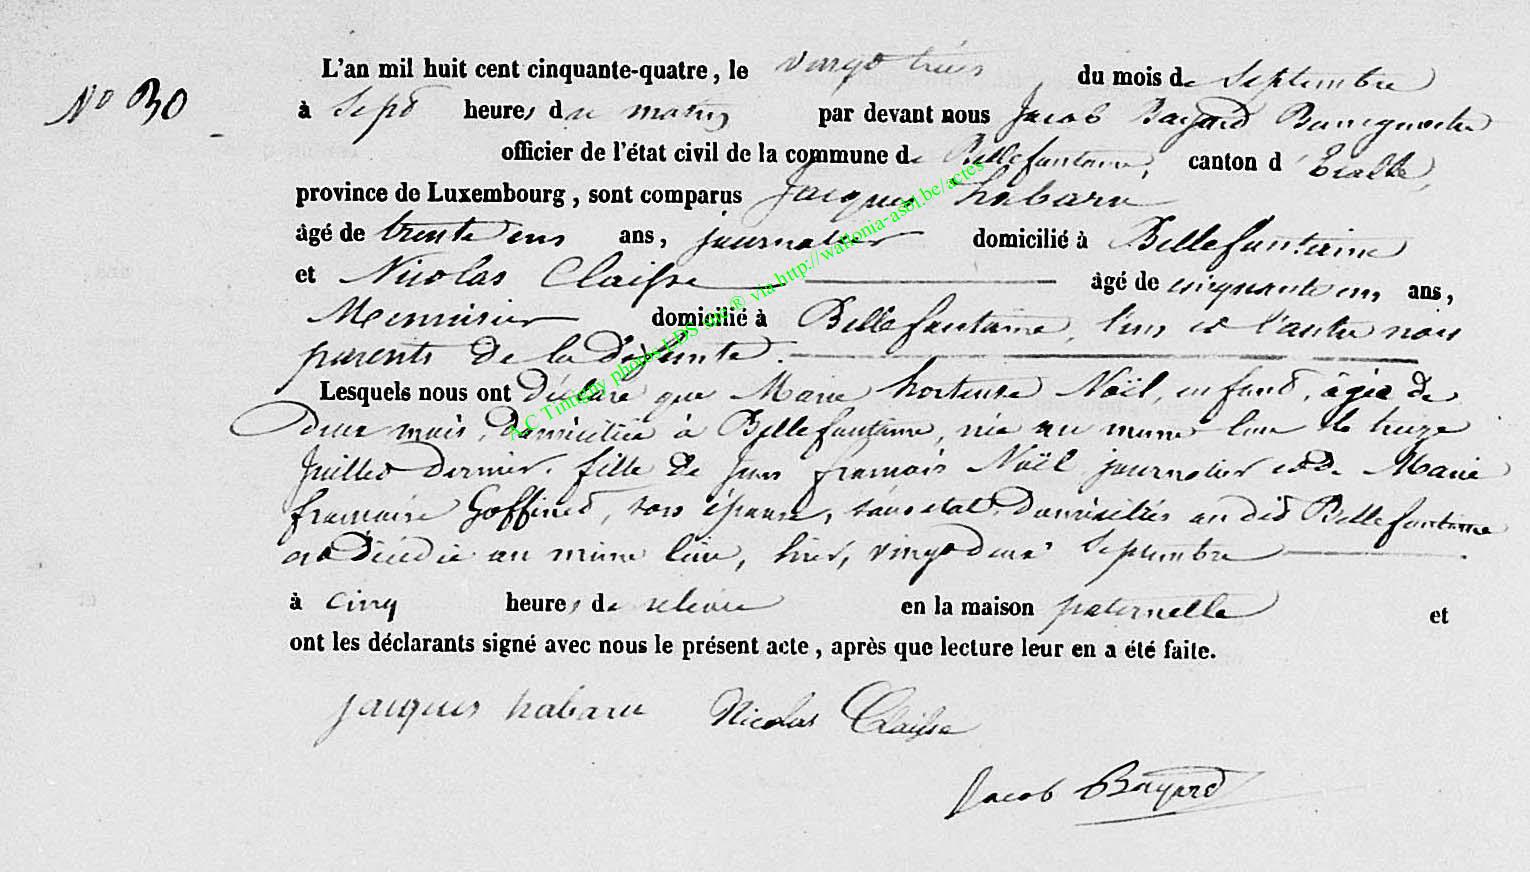 L'an mil huit cent cinquante-quatre, le vingt trois du mois de Septembre
No 30
à Sept heures du matin par devant nous Jacob Bayard Bourgmestre
officier de l'état civil de la commune de Bellefontaine, canton d'Etalle,
province de Luxembourg, sont comparus Jacques habaru
âgé de trente ans, journalier domicilié à Bellefontaine
et Nicolas Claisse âgé de cinquante ans,
Menuisier domicilié à Bellefontaine, l'un et l'autre non
parents de la défunte.
Lesquels nous ont déclaré que Marie hortense Noël, enfant, âgée de
Deux mois, domiciliée à Bellefontaine, née au même lieu le treize
Juillet dernier, fille de Jean françois Noël journalier et de Marie
françoise Goffinet, son épouse, sans état, Domiciliés au dit Bellefontaine
est Décédée au même lieu, hier, vingt deux Septembre
à cinq heures de relevée en la maison paternelle et
ont les déclarants signé avec nous le présent acte, après que lecture leur en a été faite.
Jacques habaru Nicolas Claisse
Jacob Bayard
A.C Tintigny photos LDS via http://wallonia-asbl.be/actes